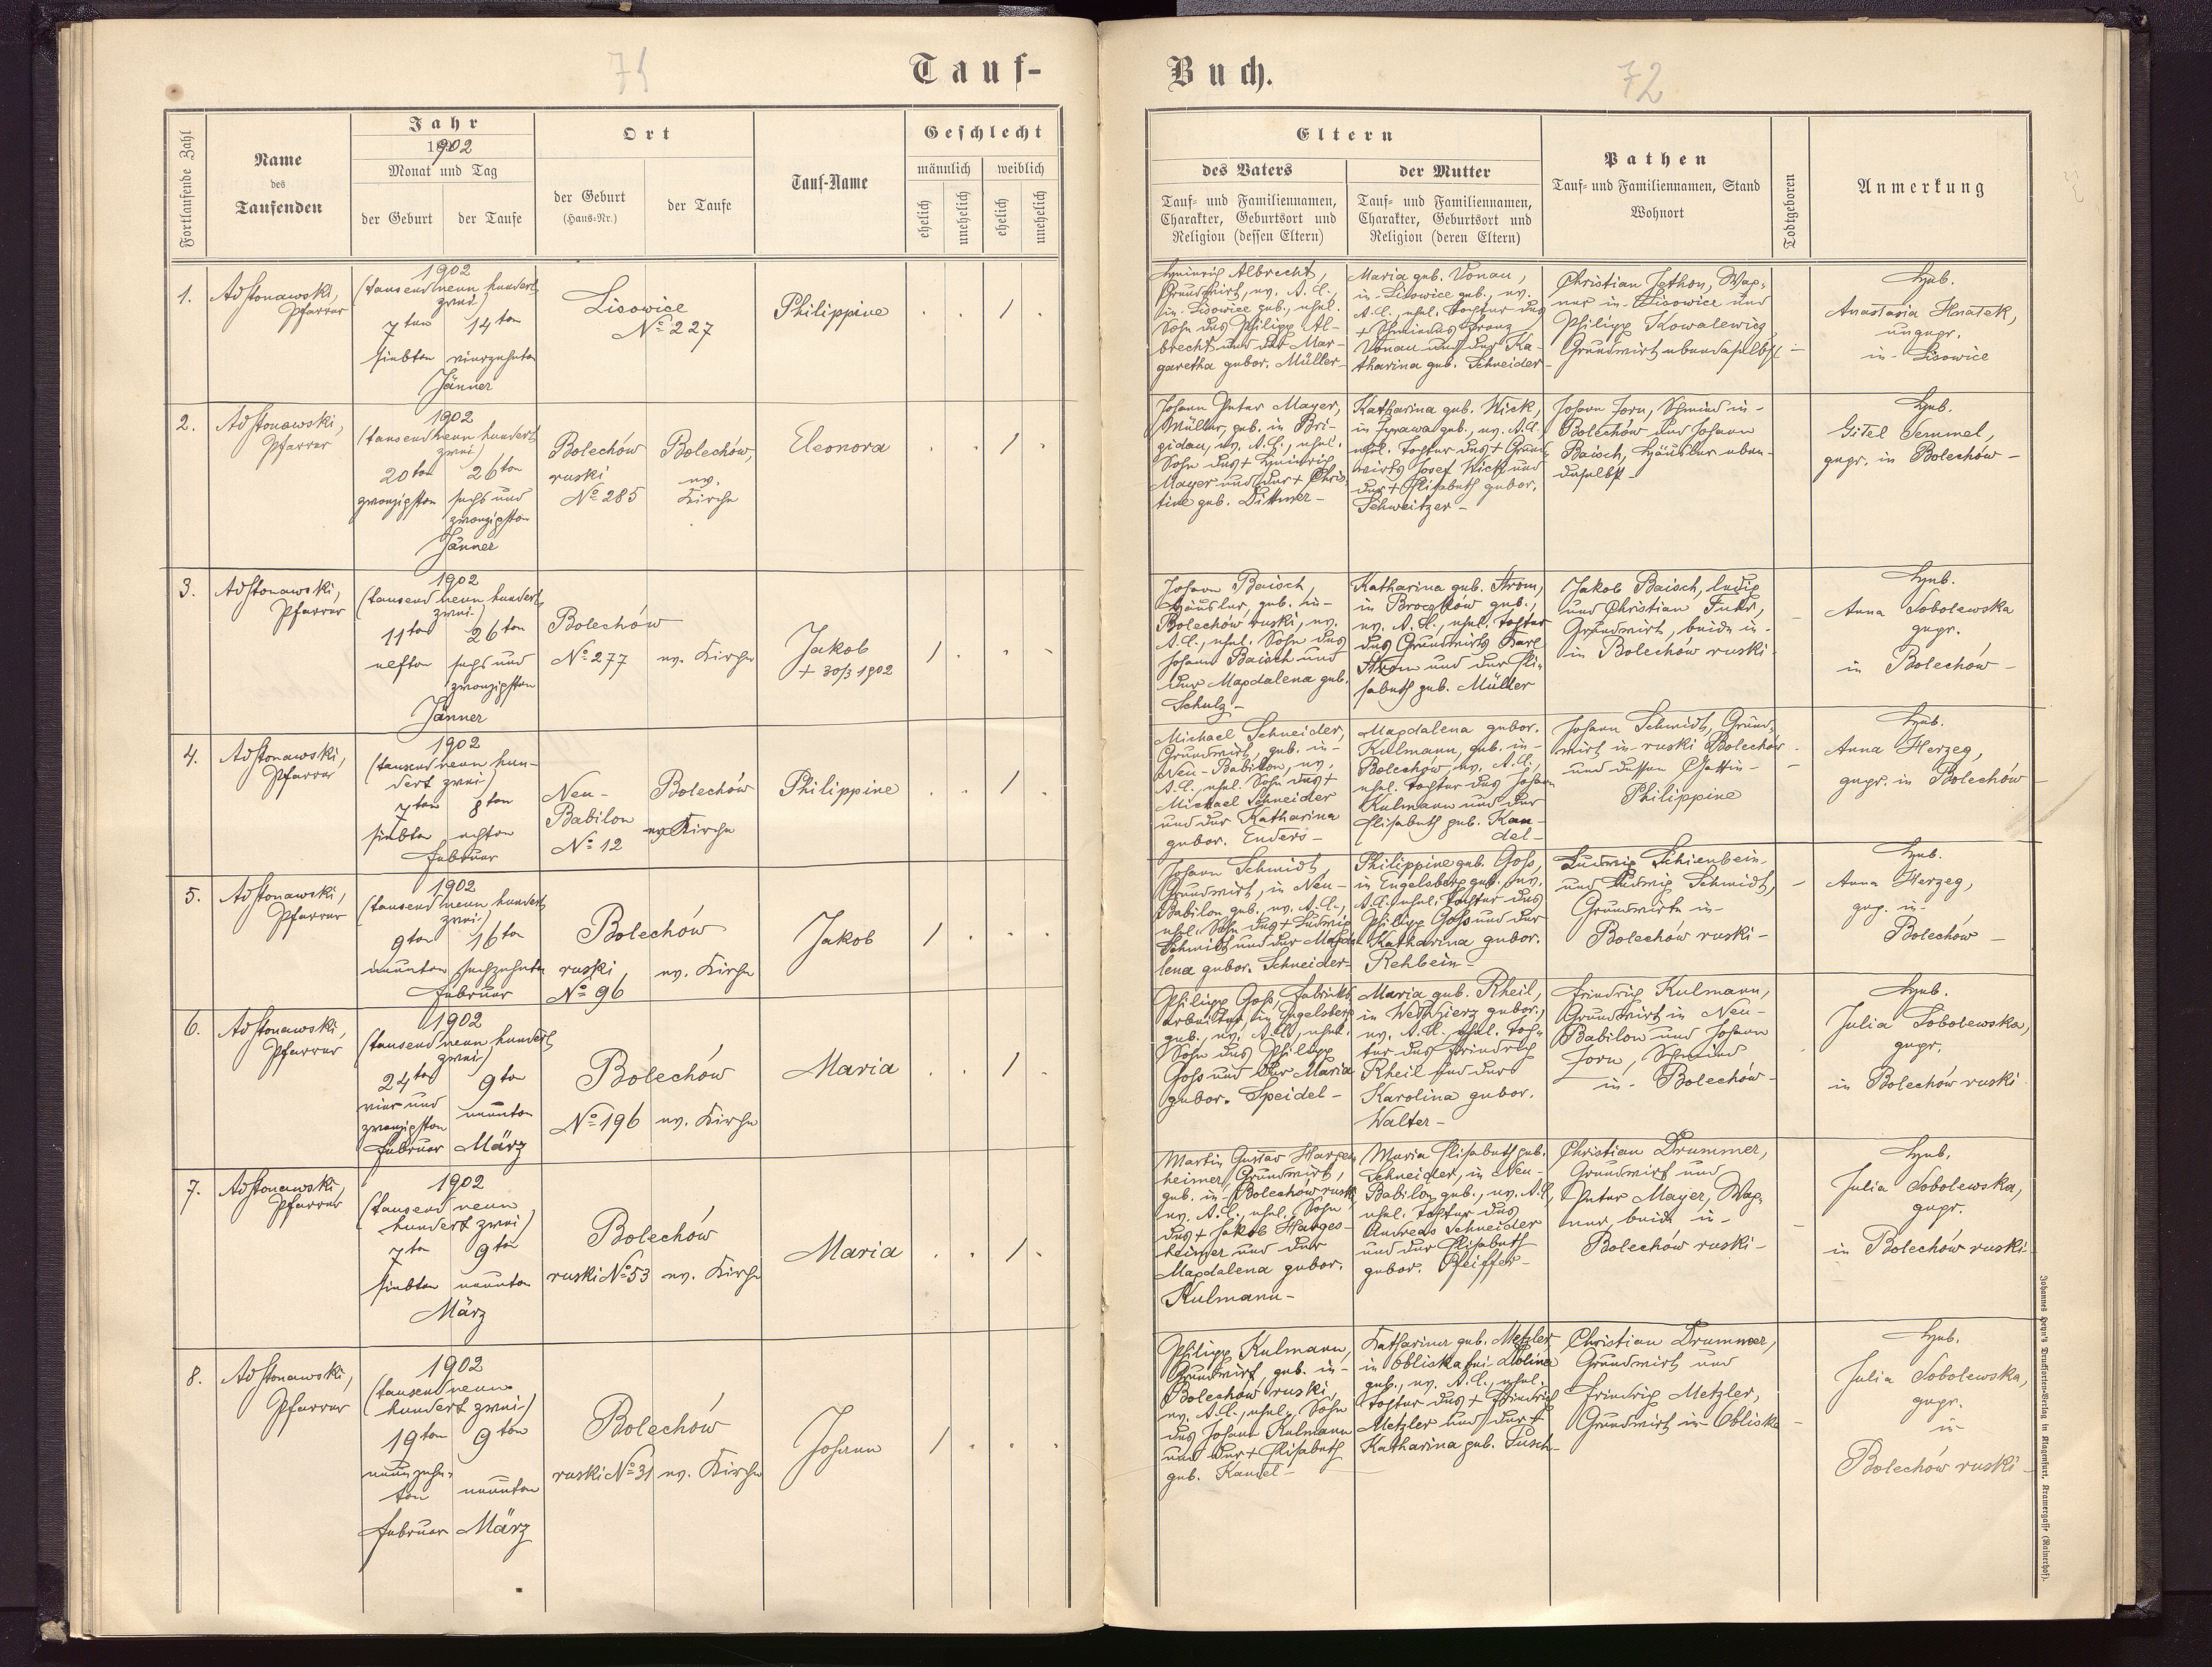 71
Tauf-
Fortlaufende Zahl
Name
des
Taufenden
Jahr
1902
Monat und Tag
der Geburt
der Taufe
Ort
der Geburt
(Haus-Nr.)
der Taufe
Tauf-Name
Geschlecht
männlich
weiblich
ehelich
unehelich
ehelich
unehelich
1.
Adstonawski,
Pfarrer
1902
(tausend neun hundert
zwei)
7ten 14ten
siebten vierzehnten
Jänner
Lisowice
No 227
Philippine
. . / .
2.
Adstonawski,
Pfarrer
1902
(tausend neun hundert
zwei)
20ten 26ten
zwanzigsten sechs und
zwanzigsten
Jänner
Bolechów
ruski
No 285
Bolechów,
ev.
Kirche
Eleonora
. . / .
3.
Adstonawski,
Pfarrer
1902
(tausend neun hundert
zwei)
11ten 26ten
elften sechs und
zwanzigsten
Jänner
Bolechów
No 277 ev. Kirche
Jakob
+ 30/3 1902
/ . . .
4.
Adstonawski,
Pfarrer
1902
(tausend neun hun-
dert zwei)
7ten 8ten
siebten achten
Februar
Neu-
Babilon
No 12
Bolechów
ev. Kirche
Philippine
. . / .
5.
Adstonawski,
Pfarrer
1902
(tausend neun hundert
zwei)
9ten 16ten
neunten sechzehnten
Februar
Bolechów
ruski ev. Kirche
No 96
Jakob
/ . . .
6.
Adstonawski,
Pfarrer
1902
(tausend neun hundert
zwei)
24ten 9ten
vier und neunten
zwanzigsten
Februar März
Bolechów
No 196 ev. Kirche
Maria
. . / .
7.
Adstonawski,
Pfarrer
1902
(tausend neun
hundert zwei)
7ten 9ten
siebten neunten
März
Bolechów
ruski No 53 ev. Kirche
Maria
. . / .
8.
Adstonawski,
Pfarrer
1902
(tausend neun
hundert zwei)
19ten 9ten
neunzehn-
ten neunten
Februar März
Bolechów
ruski No 31 ev. Kirche
Johann
/ . . .
Buch.
72
Eltern
des Vaters
Tauf- und Familiennamen,
Charakter, Geburtsort und
Religion (dessen Eltern)
der Mutter
Tauf- und Familiennamen,
Charakter, Geburtsort und
Religion (deren Eltern)
Pathen
Tauf- und Familiennamen, Stand
Wohnort
Todtgeboren
Anmerkung
Heinrich Albrecht,
Grundwirt, ev. A. C.,
in Lisowice geb., ehel.
Sohn des Philipp Al-
brecht und der Mar-
garetha gebor. Müller-
Maria geb. Vonau,
in Lisowice geb., ev.
A. C., ehel. Tochter des
+ Schmiedes Franz
Vonau und der Ka-
tharina geb. Schneider-
Christian Jethon, Wag-
ner in Lisowice und
Philipp Kowalewicz
Grundwirt ebendaselbst -
Heb.
Anastasia Hnatek,
ungepr.
in Lisowice
Johann Peter Mayer,
Müller, geb. in Bri-
gidau, ev. A. C., ehel.
Sohn des + Heinrich
Mayer und der + Chris-
tine geb. Dittmer-
Katharina geb. Wick,
in Zyrawa geb., ev. A. C.
ehel. Tochter des + Grund-
wirts Josef Wick und
der + Elisabeth gebor.
Schweitzer-
Johann Jorn, Schmied in
Bolechów und Johann
Baisch, Häusler eben-
daselbst-
Heb.
Gitel Semmel,
gepr. in Bolechów-
Johann Baisch,
Häusler, geb. in
Bolechów ruski, ev.
A. C., ehel. Sohn des
Johann Baisch und
der Magdalena geb.
Schulz-
Katharina geb. Strom,
in Broczków geb.,
ev. A. C., ehel. Tochter
des Grundwirts Karl
Strom und der Eli-
sabeth geb. Müller
Jakob Baisch, ledig
und Christian Fuhr,
Grundwirt, beide in
in Bolechów ruski-
Heb.
Anna Sobolewska
gepr.
in Bolechów-
Michael Schneider,
Grundwirt, geb. in
Neu-Babilon, ev.
A. C., ehel. Sohn des +
Michael Schneider
und der Katharina
gebor. Enders-
Magdalena gebor.
Kulmann, geb. in
Bolechów, ev. A. C.,
ehel. Tochter des Johann
Kulmann und der
Elisabeth geb. Kan-
del-
Johann Schmidt, Grund-
wirt in ruski Bolechów
und dessen Gattin
Philippine
Heb.
Anna Herzeg,
gepr. in Bolechów-
Johann Schmidt
Grundwirt, in Neu-
Babilon geb. ev. A. C.,
ehel. Sohn des + Ludwig
Schmidt und der Magda-
lena gebor. Schneider-
Philippine geb. Goss,
in Engelsberg geb. ev.
A. C. ehel. Tochter des
Philipp Goss und der
Katharina gebor.
Rehbein-
Ludwig Schienbein
und Ludwig Schmidt,
Grundwirte in
Bolechów ruski-
Heb.
Anna Herzeg,
gep. in
Bolechow-
Philipp Goss, Fabriks-
arbeiter, in Engelsberg
geb., ev. A. C., ehel.
Sohn des Philipp
Goss und der Maria
gebor. Speidel-
Maria geb. Rheil,
in Weldzierz gebor.,
ev. A. C. ehel. Toch-
ter des Friedrich
Rheil und der
Karolina gebor.
Walter-
Friedrich Kulmann,
Grundwirt in Neu-
Babilon und Johann
Jorn, Schmied
in Bolechów-
Heb.
Julia Sobolewska,
gepr.
in Bolechów ruski
Martin Gustav Harges-
heimer, Grundwirt,
geb. in Bolechow ruski,
ev. A. C., ehel. Sohn
des + Jakob Harges-
heimer und der
Magdalena gebor.
Kulmann-
Maria Elisabeth geb.
Schneider, in Neu-
Babilon geb., ev. A. C.,
ehel. Tochter des
Andreas Schneider
und der Elisabeth
gebor. Pfeiffer-
Christian Drummer,
Grundwirt und
Peter Mayer, Wag-
ner, beide in
Bolechów ruski-
Heb.
Julia Sobolewska,
gepr.
in Bolechów ruski-
Philipp Kulmann,
Grundwirt, geb. in
Bolechów ruski,
ev. A. C., ehel. Sohn
des Johann Kulmann
und der + Elisabeth
geb. Kandel-
Katharina geb. Metzler,
in Obliska bei Dolina
geb., ev. A. C., ehel.
Tochter des + Friedrich
Metzler und der +
Katharina geb. Tusch-
Christian Drummer,
Grundwirt und
Friedrich Metzler,
Grundwirt in Obliska-
Heb.
Julia Sobolewska,
gepr.
in
Bolechów ruski-
Johannes Heyn's Drucksorten-Verlag in Klagenfurt, Kramergasse (Rainerhof).